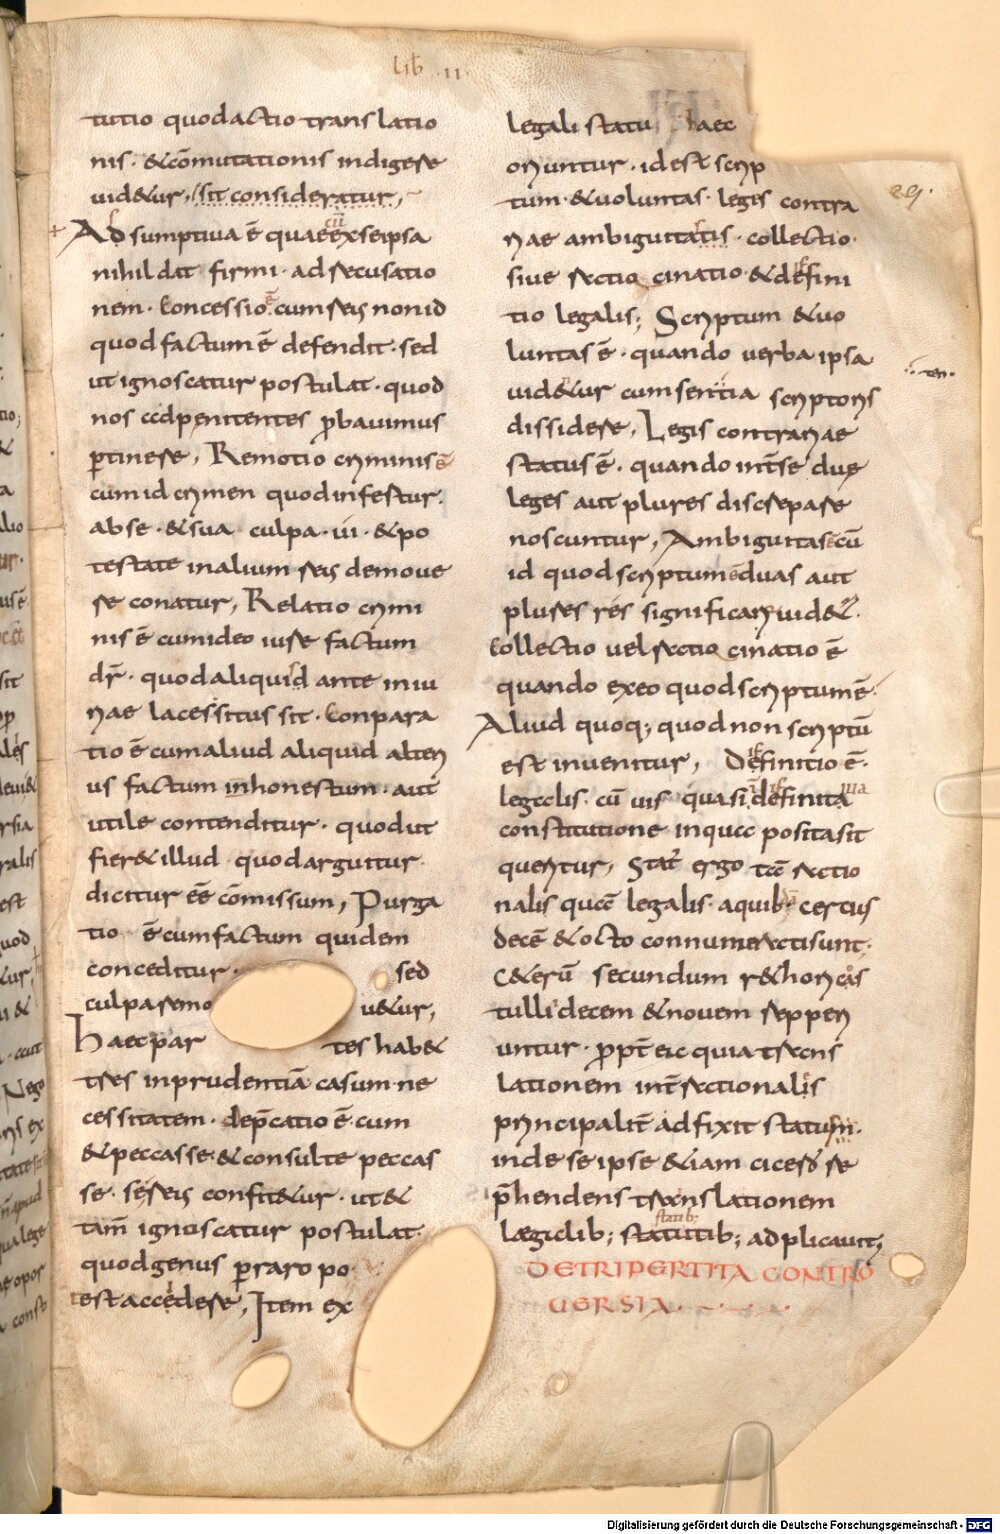 lib · II ·
29.
tutio quod actio translatio
nis · & cōmutationis indigere
uid&ur, sit consideratur,
Adsumptiua ē quae cū ex se ipsa
nihil dat firmi · ad recusatio
nem · Concessio ē cum reus non id
quod factum ē defendit · sed
ut ignoscatur postulat · quod
nos ad penitentes probauimus
pertinere, Remotio criminis ē
cum id crimen quod infertur ·
ab se · & sua culpa · ui · & po
testate in alium reus demoue
re conatur, Relatio crimi
nis ē cum ideo iure factum
dr̄ · quod aliquid ante iniu
riae lacessitus sit · Conpara
tio ē cum aliud aliquid alteri
us factum inhonestum · aut
utile contenditur · quod ut
fier& illud quod arguitur ·
dicitur eē cōmissum, Purga
tio ē cum factum quidem
conceditur · sed
culpa remo u&ur,
Haec par tes hab&
tres inprudentiā casum · ne
cessitatem · dep̄catio ē · cum
& peccasse · & consulte peccas
se · se reus confit&ur · ut &
tam̄ ignoscatur postulat ·
quod genus perraro po
test accedere, Item ex
legali statu haec
oriuntur · id est scrip
tum · & uoluntas · leges contra
riae ambiguitatis · collectio ·
siue ratio cinatio · & defini
tio legalis; Scriptum & uo
luntas ē · quando uerba ipsa
uid&ur cum sententia scriptoris
dissidere, Legis contrariae
status ē · quando int̄ se due
leges aut plures discrepare
noscuntur, Ambiguitas ē cū
id quod scriptum ē duas aut
plures res significari uid& ·
Collectio uel ratio cinatio ē
quando ex eo quod scriptum ē ·
Aliud quoq; quod non scriptū
est inuenitur, Definitio ē ·
legalis · cū uis quasi definita
constitutione in qua posita sit
queritur, Stat̄ ergo tā ratio
nalis quā legalis · a quib · certius
decē & octo connumerati sunt ·
C&erū secundum r&horicas
tulli decem & nouem repperi
untur · propt̄eic quia trans
lationem int̄ rationalis
principalit̄ adfixit statum ·
inde se ipse &iam cicero re
p̄hendens translationem
lægalib; statutib; adplicauit;
DE TRIPERTITA CONTRO
UERSIA ·
Digitalisierung gefördert durch die Deutsche Forschungsgemeinschaft - DFG